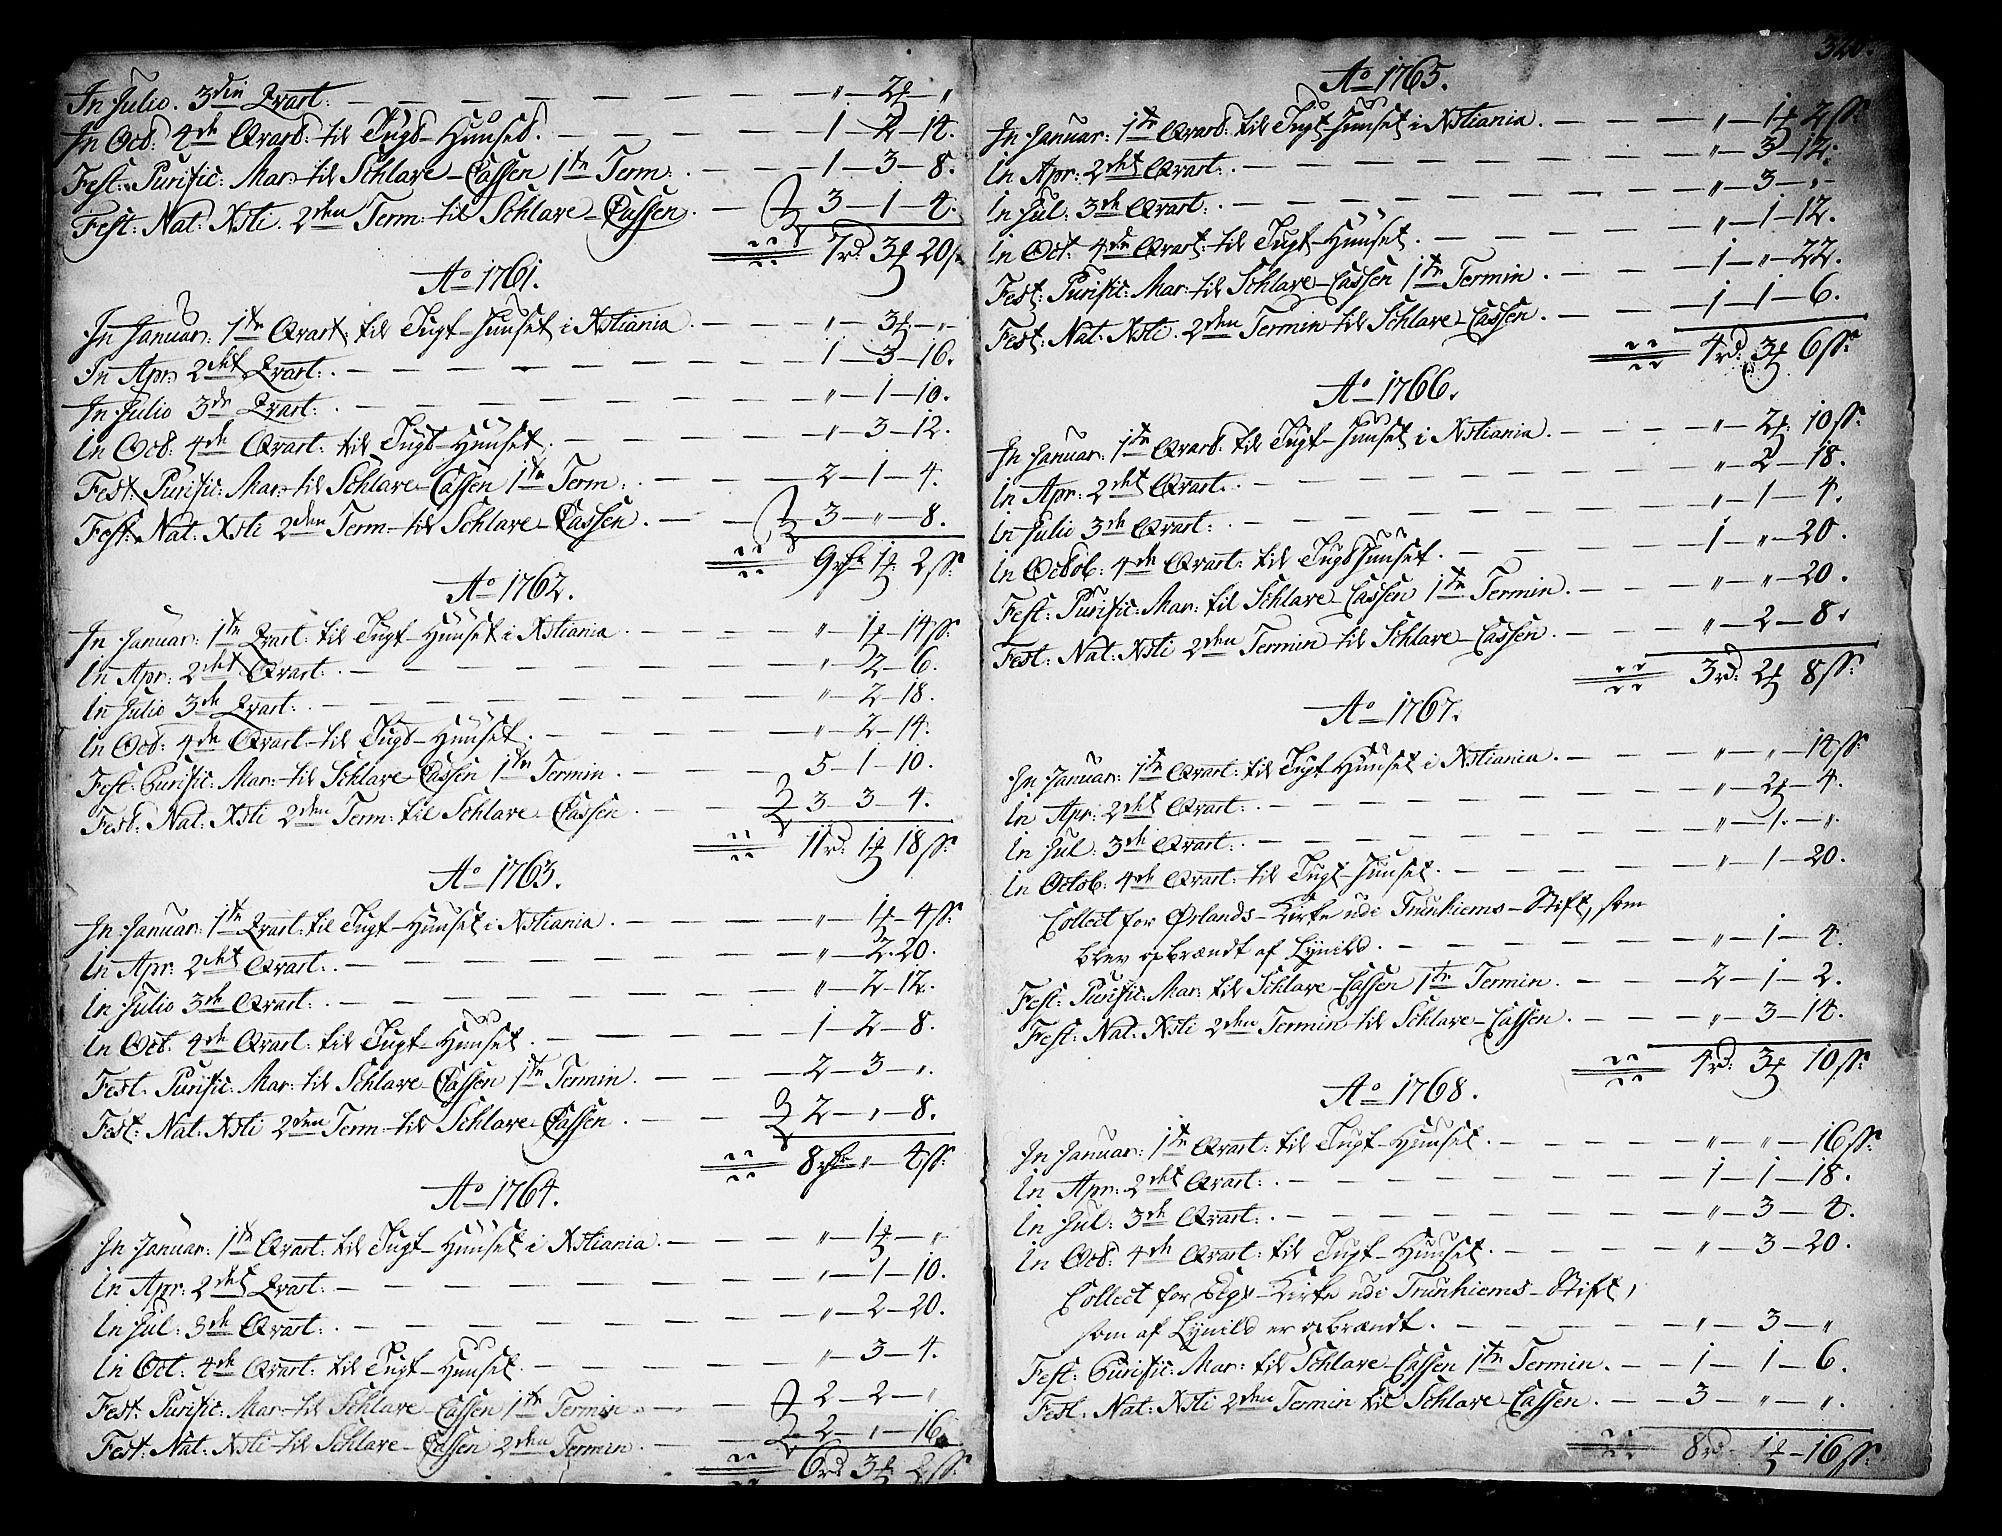 In Julio. 3die Qvart: — — — — — „ — 2 ort — „
In Octb: 4de Qvart: til Tugt-Huuset. — — — — 1 — 2 — 14.
Fest: Purific: Mar: til Schlave-Cassen 1te Term: — — 1 — 3 — 8.
Fest: Nat: Xsti. 2den Term: til Schlave-Cassen. — 3 — 1 — 4.
7 rd 3 ort 20 s
Ao 1761.
In Januar: 1te Qvart: til Tugt-Huuset i Xstiania. — — — „ — 3 ort — „
In Apr: 2det Qvart: — — — — — 1 — 3 — 16.
In Julio 3de Qvart: — — — — — „ — 1 — 10.
In Octb: 4de Qvart: til Tugt-Huuset. — — — — „ — 3 — 12.
Fest: Purific: Mar: til Schlave-Cassen 1te Term: — — — 2 — 1 — 4.
Fest: Nat: Xsti 2den Term: til Schlave-Cassen. — — 3 — „ — 8.
9 rdr 1 ort 2 ss:
Ao 1762.
In Januar: 1te Qvart: til Tugt-Huuset i Xstiania. — — — „ — 1 ort — 14 ss:
In Apr: 2det Qvart: — — — — — „ — 2 — 6.
In Julio 3de Qvart: — — — — — „ — 2 — 18.
In Octb: 4de Qvart: til Tugt-Huuset. — — — — „ — 2 — 14.
Fest: Purific: Mar: til Schlave-Cassen 1te Termin. — — — 5 — 1 — 10.
Fest: Nat: Xsti 2den Term: til Schlave-Cassen. — — 3 — 3 — 4.
11 rd: 1 ort 18 ss:
Ao 1763.
In Januar: 1te Qvart: til Tugt-Huuset i Xstiania. — — — „ — 1 ort — 4 ss:
In Apr: 2det Qvart: — — — — — „ — 2 — 20.
In Julio 3de Qvart: — — — — — „ — 2 — 12.
In Oct: 4de Qvart: til Tugt-Huuset. — — — — 1 — 2 — 8.
Fest: Purific: Mar: til Schlave-Cassen 1te Termin. — — — 2 — 3 — „
Fest: Nat: Xsti 2den Term: til Schlave-Cassen. — — 2 — „ — 8.
8 rdr „ — 4 ss:
Ao 1764.
In Januar: 1te Qvart: til Tugt-Huuset i Xstiania. — — — „ — 1 ort — „
In Apr: 2det Qvart: — — — — — „ — 1 — 10.
In Jul: 3de Qvart: — — — — — „ — 2 — 20.
In Oct: 4de Qvart: til Tugt-Huuset. — — — — „ — 3 — 4.
Fest: Purific: Mar: til Schlave-Cassen 1te Termin. — — 2 — 2 — „
Fest: Nat: Xsti til Schlave-Cassen 2den Termin. — — 2 — „ — 16.
6 rd 3 ort 2 ss:
320.
Ao 1765.
In Januar: 1te Qvart: til Tugt-Huuset i Xstiania. — — — „ — 1 ort 2 ss:
In Apr: 2det Qvart: — — — — — „ — 3 — 12.
In Jul: 3de Qvart: — — — — — „ — 3 — „
In Oct: 4de Qvart: til Tugt-Huuset. — — — — „ — 1 — 12.
Fest: Purific: Mar: til Schlave-Cassen 1te Termin. — — 1 — „ — 22.
Fest: Nat: Xsti. 2den Termin til Schlave-Cassen. — — 1 — 1 — 6.
4 rd: 3 ort 6 ss:
Ao 1766.
In Januar: 1te Qvart: til Tugt-Huuset i Xstiania. — — — „ — 2 ort 10 ss:
In Apr: 2det Qvart: — — — — — „ — 2 — 18.
In Julio 3de Qvart: — — — — — „ — 1 — 4.
In Octob: 4de Qvart: til Tugthuuset. — — — — 1 — „ — 20.
Fest: Purific: Mar: til Schlave-Cassen 1te Termin. — — „ — „ — 20.
Fest: Nat: Xsti 2den Termin til Schlave-Cassen. — — „ — 2 — 8.
3 rd: 2 ort 8 ss:
Ao 1767.
In Januar: 1te Qvart: til Tugt-Huuset i Xstiania. — — — „ — „ — 14 ss:
In Apr: 2det Qvart: — — — — — „ — 2 ort — 4.
In Jul: 3de Qvart: — — — — — „ — 1. — „
In Octob: 4de Qvart: til Tugt-Huuset. — — — — „ — 1 — 20.
Collect for Ørlands-Kirke udi Trunhiems-Stift, som
blev opbrændt af Lynild. — — — — „ — 1 — 4.
Fest: Purific: Mar: til Schlave-Cassen 1te Termin. — — 2 — 1 — 2.
Fest: Nat: Xsti 2den Termin til Schlave-Cassen. — — „ — 3 — 14.
4 rd: 3 ort 10 ss:
Ao 1768.
In Januar: 1te Qvart: til Tugt-Huuset. — — — — „ — „ — 16 ss:
In Apr: 2det Qvart: — — — — — 1 — 1 — 18.
In Jul: 3de Qvart: — — — — — „ — 3 — 4.
In Octb: 4de Qvart: til Tugt-Huuset. — — — — „ — 3 — 20.
Collect for -Kirke udi Trunhiems-Stift,
som af Lynild er opbrændt. — — — — „ — 3 — „
Fest: Purific: Mar: til Schlave-Cassen 1te Termin. — — 1 — 1 — 6.
Fest: Nat: Xsti 2den Termin til Schlave-Cassen. — — 3 — „ — „.
8 rd. 1 ort — 16 ss: